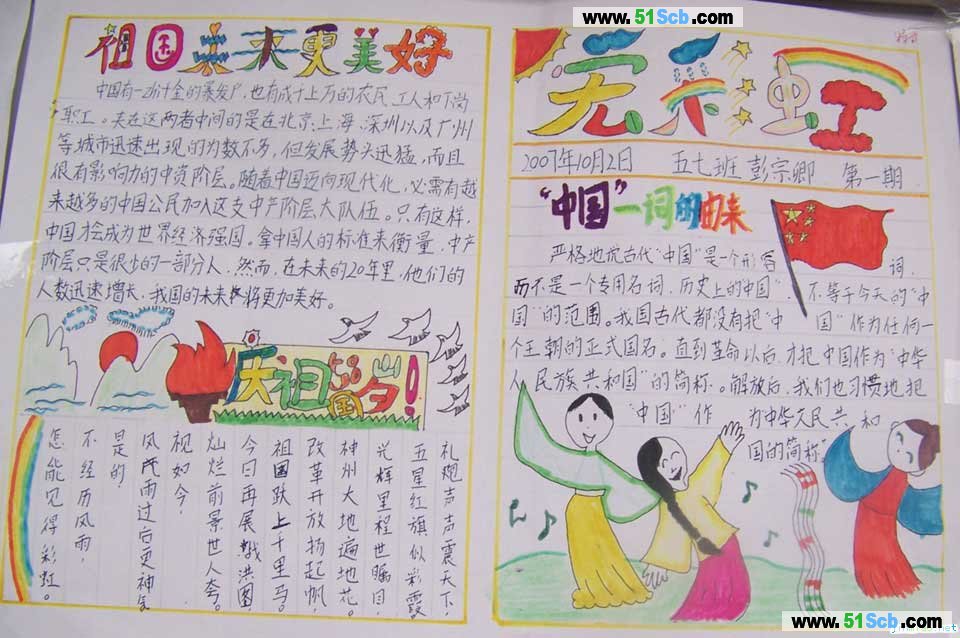 www.51Scb.com
祖国未来更美好
中国有一小汁金的暴发户，也有成千上万的农民、工人和下岗
职工。夹在这两者中间的是在北京、上海、深圳以及广州
等城市迅速出现的为数不多，但发展势头迅猛，而且
很有影响力的中资阶层。随着中国迈向现代化，必需有越
来越多的中国公民加入这支中产阶层大队伍。只有这样，
中国才会成为世界经济强国。拿中国人的标准来衡量，中产
阶层只是很少的一部分人，然而，在未来的20年里，他们的
人数迅速增长，我国的未来将更加美好。
庆祖国58岁！
礼炮声声震天下，
五星红旗似彩霞。
光辉里程世瞩目，
神州大地遍地花。
改革开放扬起帆，
祖国跃上千里马。
今日再展鸿图
灿烂前景世人夸。
视如今，
风雨过后更神
是的，
不经历风雨，
怎能见得彩虹。
天虹
2007年10月2日 五七班 彭宗卿 第一期
“中国”一词的由来
严格地说古代“中国”是一个形容词，
而不是一个专用名词，历史上的“中国”不等于今天的“中
国”的范围。我国古代都没有把“中国”作为任何一
个王朝的正式国名。直到革命以后，才把中国作为“中华
人民族共和国”的简称。解放后，我们也习惯地把
“中国”作为中华人民共和
国的简称”
www.51Scb.com